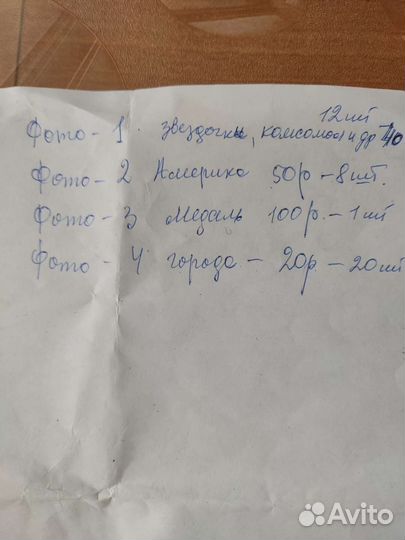 12шт
Фото - 1 звездочки, комсомол и др 40
Фото - 2 Америка 50р - 8шт.
Фото - 3 Медаль 100р. - 1шт
Фото - 4 города - 20р. - 20шт
Avito